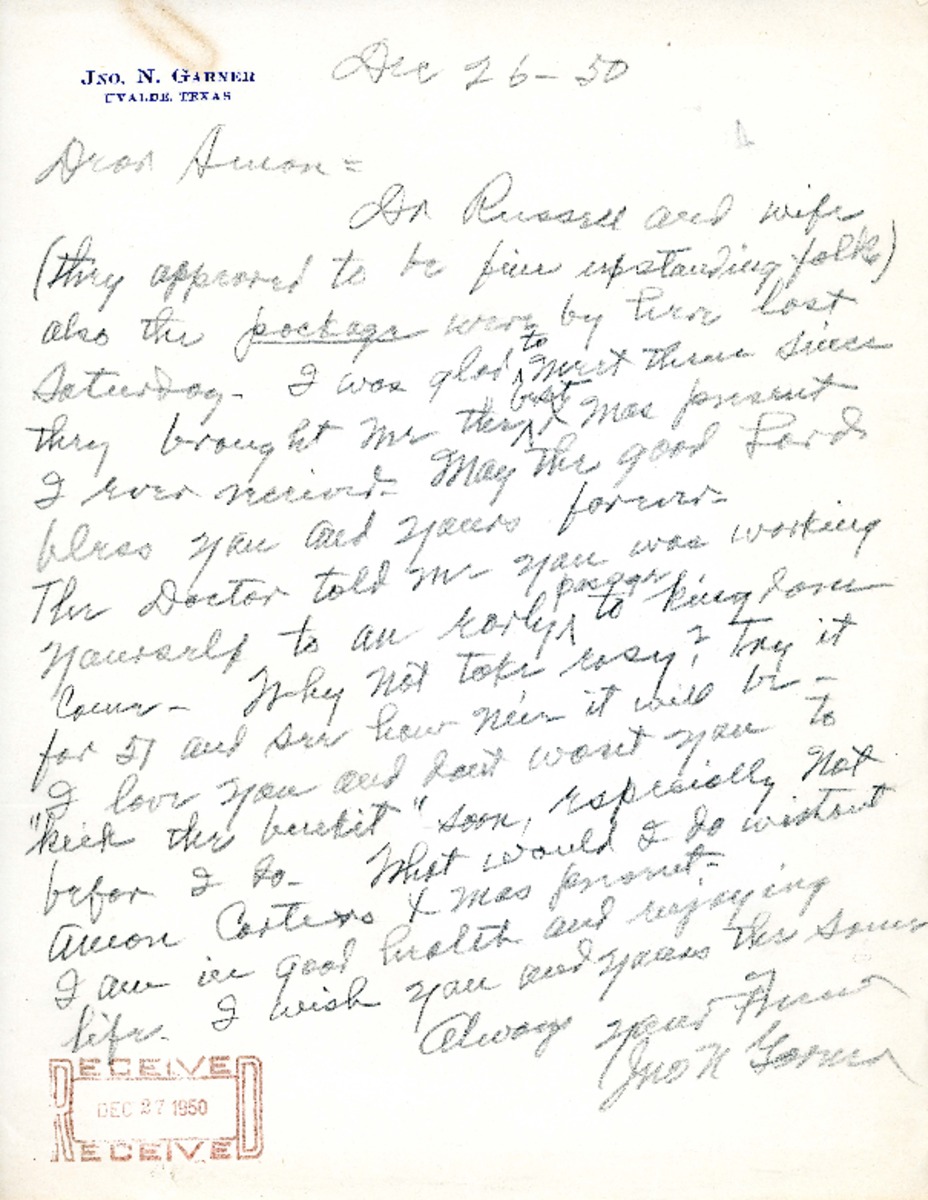 JNO. N. GARNER
UVALDE, TEXAS
Dec 26 - 50
Dear Amon =
Dr Russell and wife
(they appeared to be fine upstanding folks)
also the package were by here last
Saturday - I was glad to meet them since
they brought me the best Xmas present
I ever received - May the good Lord
bless you and yours forever -
The Doctor told me you was working
yourself to an early passage to kingdom
Come - Why not take easy? Try it
for 51 and see how nice it will be -
I love you and dont want you to
"kick the buckit" soon, especially not
befor I do - What would I do without
Amon Carters Xmas present -
I am in good health and enjoying
life. I wish you and yours the same
Always your Friend
Jno N Garner
RECEIVED
DEC 27 1950
RECEIVED